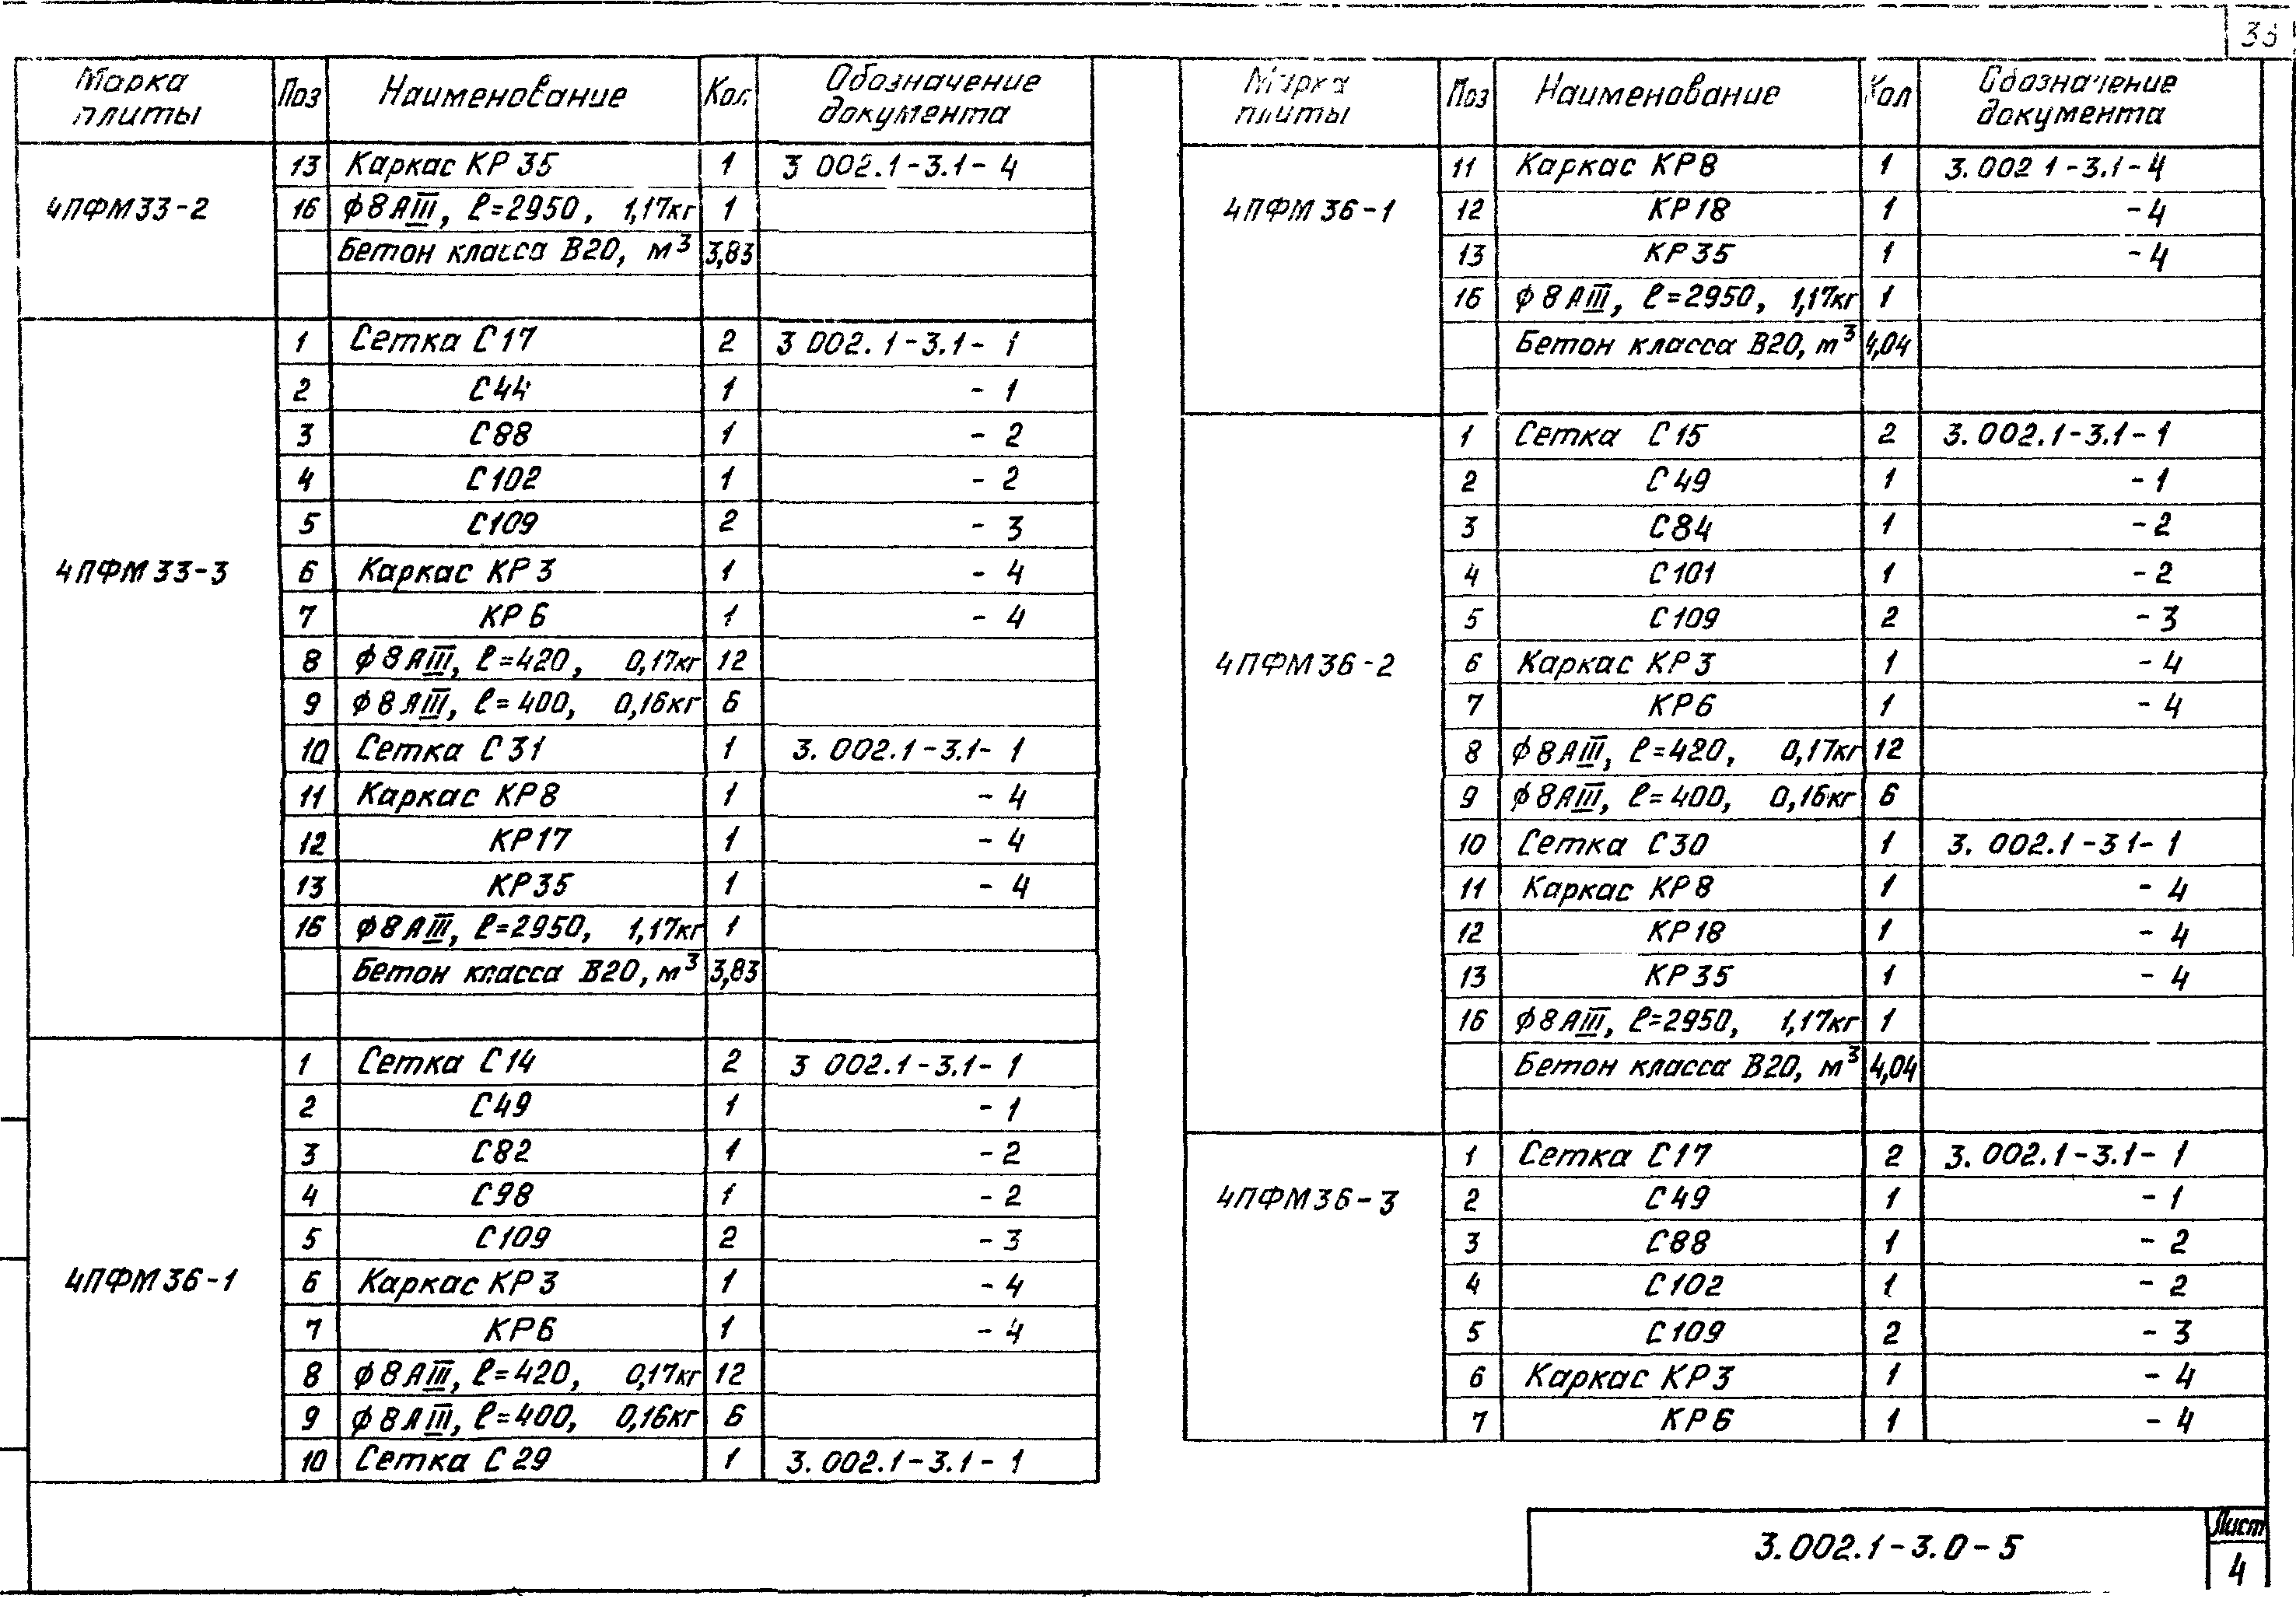 Марка плиты | Поз | Наименование | Кол. | Обозначение документа
4ПФМ33-2 | 13 | Каркас КР 35 | 1 | 3 002.1-3.1- 4
16 | ϕ8АIII, ℓ=2950, 1,17кг | 1
Бетон класса В20, м³ | 3,83
4ПФМ33-3 | 1 | Сетка С17 | 2 | 3 002.1-3.1- 1
2 | С44 | 1 | - 1
3 | С88 | 1 | - 2
4 | С102 | 1 | - 2
5 | С109 | 2 | - 3
6 | Каркас КР3 | 1 | - 4
7 | КР6 | 1 | - 4
8 | ϕ8АIII, ℓ=420, 0,17кг | 12
9 | ϕ8АIII, ℓ=400, 0,16кг | 6
10 | Сетка С31 | 1 | 3.002.1-3.1- 1
11 | Каркас КР8 | 1 | - 4
12 | КР17 | 1 | - 4
13 | КР35 | 1 | - 4
16 | ϕ8АIII, ℓ=2950, 1,17кг | 1
Бетон класса В20, м³ | 3,83
4ПФМ36-1 | 1 | Сетка С14 | 2 | 3 002.1-3.1- 1
2 | С49 | 1 | - 1
3 | С82 | 1 | - 2
4 | С98 | 1 | - 2
5 | С109 | 2 | - 3
6 | Каркас КР3 | 1 | - 4
7 | КР6 | 1 | - 4
8 | ϕ8АIII, ℓ=420, 0,17кг | 12
9 | ϕ8АIII, ℓ=400, 0,16кг | 6
10 | Сетка С29 | 1 | 3.002.1-3.1- 1
Марка плиты | Поз | Наименование | Кол | Обозначение документа
4ПФМ36-1 | 11 | Каркас КР8 | 1 | 3.002 1-3.1-4
12 | КР18 | 1 | -4
13 | КР35 | 1 | -4
16 | ϕ8АIII, ℓ=2950, 1,17кг | 1
Бетон класса В20, m³ | 4,04
4ПФМ36-2 | 1 | Сетка С15 | 2 | 3.002.1-3.1-1
2 | С49 | 1 | -1
3 | С84 | 1 | -2
4 | С101 | 1 | -2
5 | С109 | 2 | -3
6 | Каркас КР3 | 1 | -4
7 | КР6 | 1 | -4
8 | ϕ8АIII, ℓ=420, 0,17кг | 12
9 | ϕ8АIII, ℓ=400, 0,16кг | 6
10 | Сетка С30 | 1 | 3.002.1-3 1- 1
11 | Каркас КР8 | 1 | - 4
12 | КР18 | 1 | - 4
13 | КР35 | 1 | - 4
16 | ϕ8АIII, ℓ=2950, 1,17кг | 1
Бетон класса В20, м³ | 4,04
4ПФМ36-3 | 1 | Сетка С17 | 2 | 3.002.1-3.1- 1
2 | С49 | 1 | - 1
3 | С88 | 1 | - 2
4 | С102 | 1 | - 2
5 | С109 | 2 | - 3
6 | Каркас КР3 | 1 | - 4
7 | КР6 | 1 | - 4
3.002.1-3.0-5
Лист
4